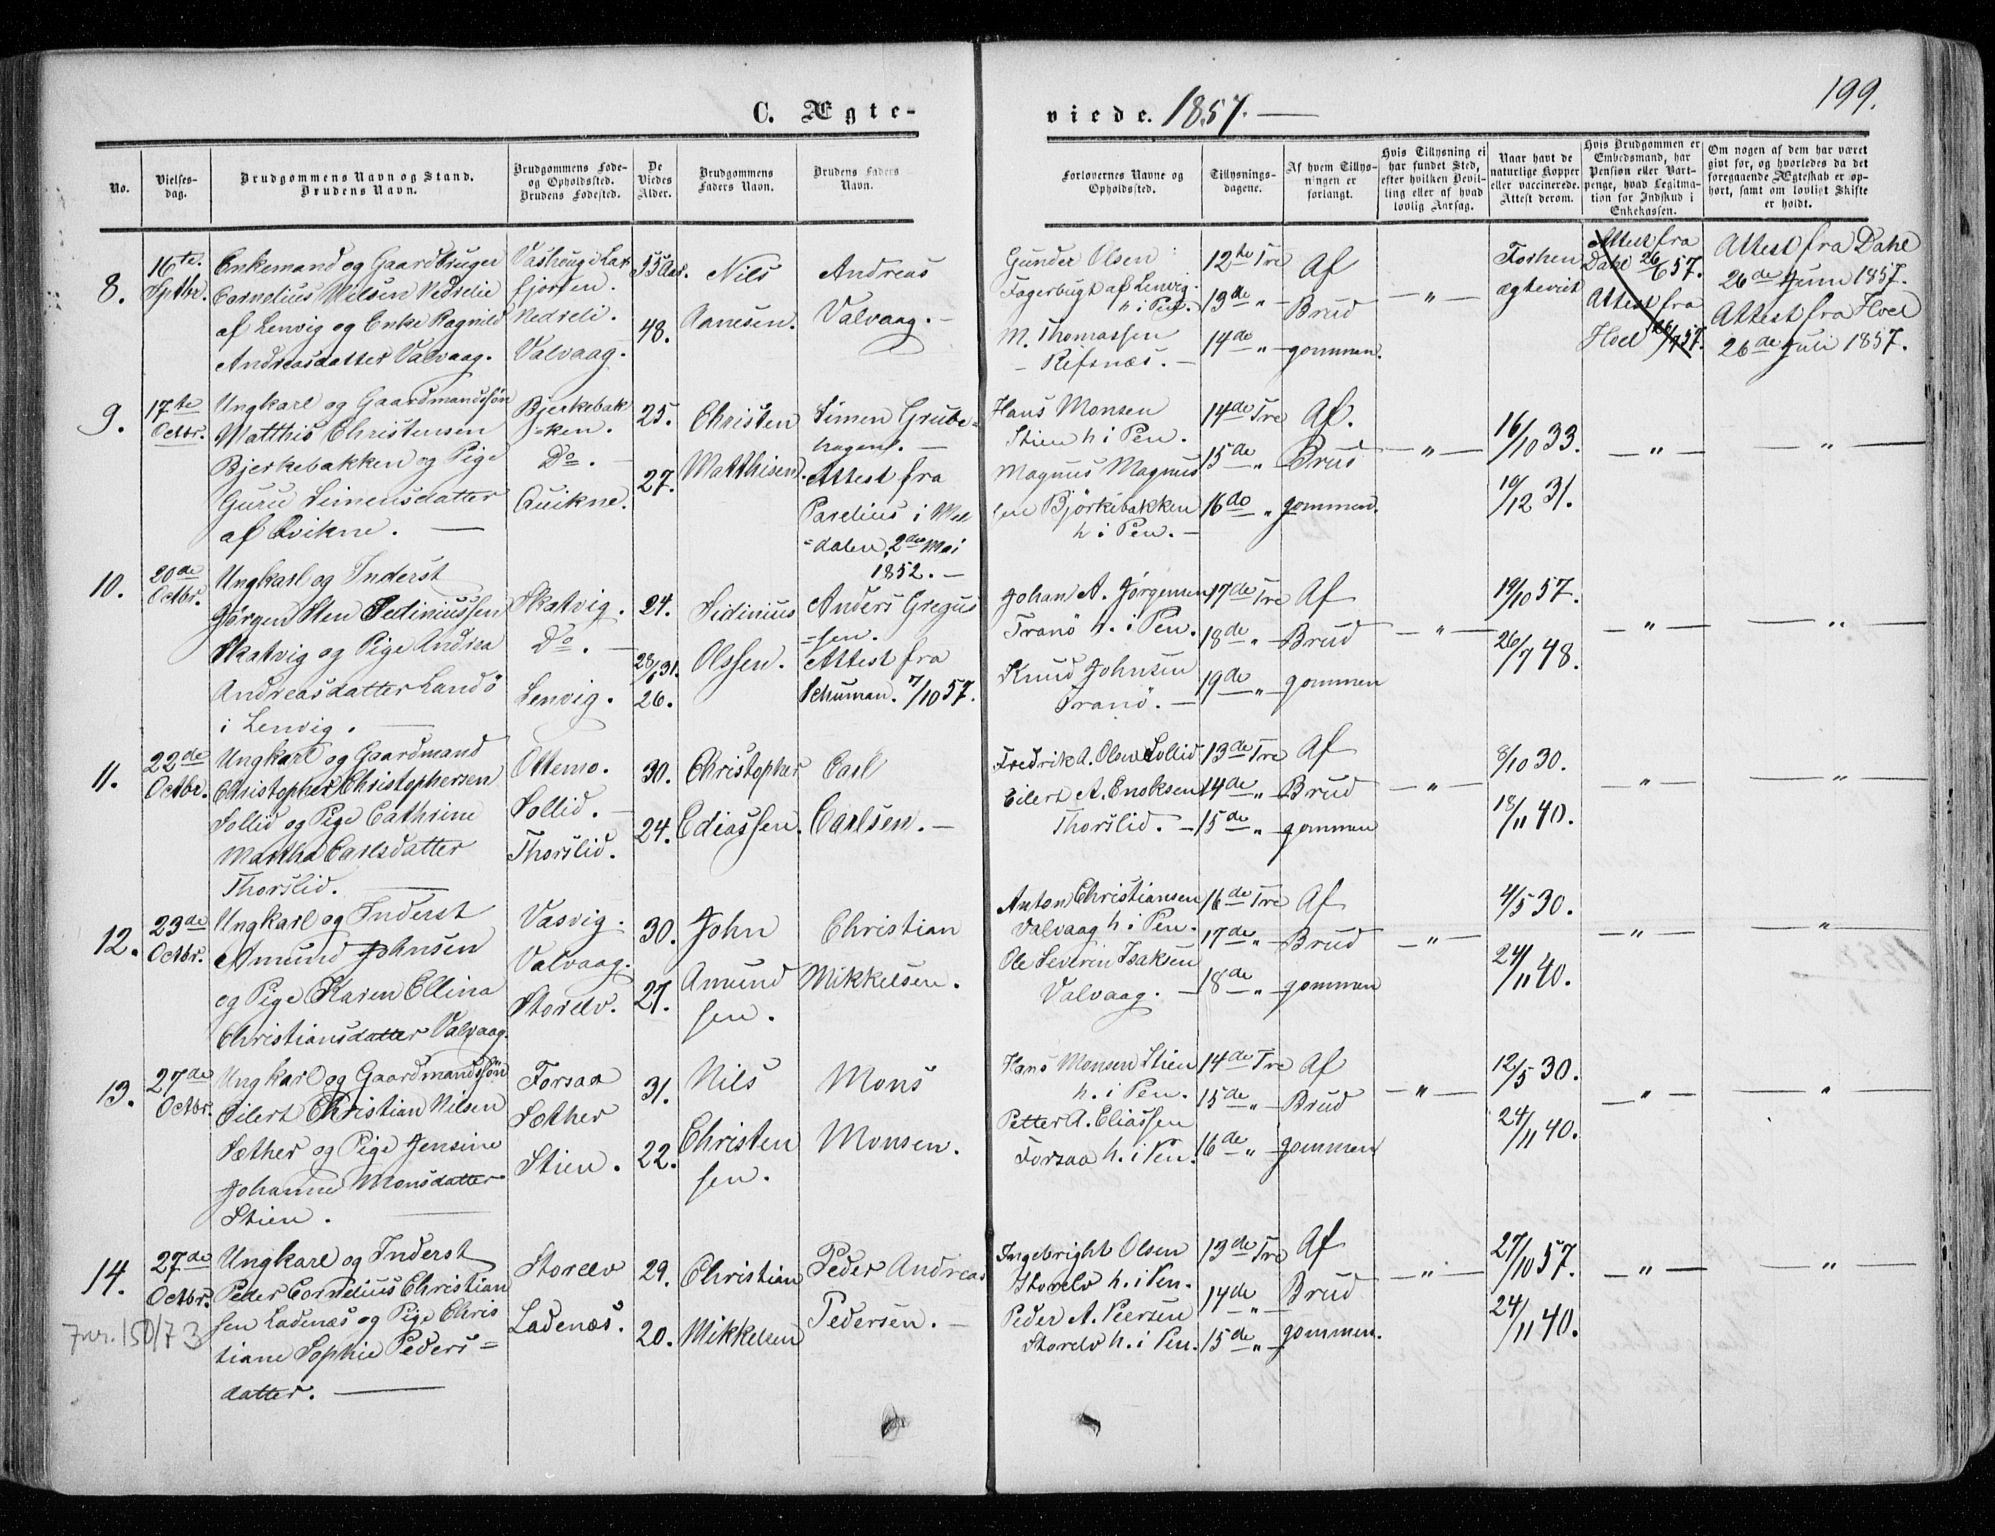 199.
C. Ægte-
viede. 1857.
No.
Vielses-
dag.
Brudgommens Navn og Stand.
Brudens Navn.
Brudgommens Føde-
og Opholdssted.
Brudens Fødested.
De
Viedes
Alder.
Brudgommens
Faders Navn.
Brudens Faders
Navn.
Forlovernes Navne og
Opholdssted.
Tillysnings-
dagene.
Af hvem Tillys-
ningen er
forlangt.
Hvis Tillysning ei
har fundet Sted,
efter hvilken Bevil-
ling eller af hvad
lovlig Aarsag.
Naar havt de
naturlige Kopper
eller vaccinerede.
Attest derom.
Hvis Brudgommen er
Embedsmand, har
Pension eller Vart-
penge, hvad Legitma-
tion for Indskud i
Enkekassen.
Om nogen af dem har været
givt før, og hvorledes da det
foregaaende Ægteskab er op-
hørt, samt om lovligt Skifte
er holdt.
8.
16te
Sptbr.
Enkemand og Gaardbruger
Cornelius Nilsen Nedrelie
af Lenvig og Enke Ragnild
Andreasdatter Valvaag.
fjorden.
Nedreli.
Valvaag.
55 Aar.
48.
Nils
Aanesen.
Andreas
Valvaag. –
Gunder Olsen
Fagerbugt af Lenvig.
" i Pen.
M. Thomassen
– Refsnæs. –
12te Tre
13de "
14de "
Af
Brud
gommen.
– " –
Forhen
ægteviet
Attest fra
Dahl 26/6 57.
Attest fra
Hoel 26/7 57.
Attest fra Dahl
26de Juni 1857.
Attest fra Hoel
26de Juli 1857.
9.
17te
Octbr.
Ungkarl og Gaardmandssøn
Matthis Christensen
Bjerkebakken og Pige
Guru Simensdatter
af Qvikne. –
Bjerkebak
=ken.
Do. –
Quikne.
25.
27.
Christen
Matthisen.
Simen Grube=
hagen. –
Attest fra
Parelius i Mel
=dalen, 2den Mai
1852. –
Hans Monsen
Stien h i Pen.
Magnus Magnus
sen Bjørkebakken
h i Pen. –
14de Tre
15de "
16de "
Af.
Brud
gommen.
– " –
16/10 33.
19/12 31.
– " –
– " –
10.
20de
Octbr.
Ungkarl og Inderst
Jørgen Sten Sediniussen
Skatvig og Pige Andrea
Andreasdatter Landø
i Lenvig. –
Skatvig.
Do. –
Lenvig.
24.
28/6 31.
26.
Sidinius
Olssen.
Anders Gregus
=sen.
Attest fra
Schuman. 7/10 57.
Johan A. Jørgensen
Tranö h. i Pen.
Knud Johnsen
Tranö. –
17de Tre
18de "
19de "
Af
Brud
gommen
– " –
19/10 57.
26/7 48.
– " –
– " –
11.
22de
Octbr.
Ungkarl og Gaardmand
Christopher Christophersen
Sollid og Pige Cathrine
Martha Carlsdatter
Thorslid. –
Ottemo.
Sollid. –
Thorslid.
30.
24.
Christopher
Ediassen.
Carl
Carlsen. –
Fredrik A. Olsen Sollid
Eilert A. Enoksen
Thorslid. –
13de Tre
14de "
15de "
Af
Brud
gommen
– " –
8/10 30.
18/11 40.
– " –
– " –
12.
23de
Octbr.
Ungkarl og Inderst
Amund Johnsen
og Pige Karen Ellina
Christiansdatter Valvaag.
Vasvig.
Valvaag.
Storelv.
30.
27.
John
Amund
sen.
Christian
Mikkelsen.
Anton Christiansen
Valvaag h i Pen.
Ole Severin Isaksen
Valvaag. –
16de Tre
17de "
18de "
Af
Brud
gommen
– " –
4/5 30.
24/11 40.
– " –
– " –
13.
27de
Octbr.
Ungkarl og Gaardmandssøn
Eilert Christian Nilsen
Sæther og Pige Jensine
Johanne Monsdatter
Stien. –
Forsaa
Sæther
Stien.
31.
22.
Nils
Christen
sen.
Mons
Monsen.
Hans Monsen Stien
h. i Pen.
Petter A. Eliassen
Forsaa h. i Pen.
14de Tre
15de "
16de "
Af
Brud
gommen
– " –
12/5 30.
24/11 40.
– " –
– " –
14.
27de
Octbr.
7nr. 150/73
Ungkarl og Inderst
Peder Cornelius Christian
sen Ladenæs og Pige Chris
tiane Sophie Peders=
datter. –
Storelv
Ladenæs.
29.
20.
Christian
Mikkelsen
Peder Andreas
Pedersen. –
Ingebright Olsen
Storelv h. i Pen.
Peder A. Peersen
Storelv h. i Pen.
13de Tre
14de "
15de "
Af
Brud
gommen.
– " –
27/10 57.
24/11 40.
– " –
– " –